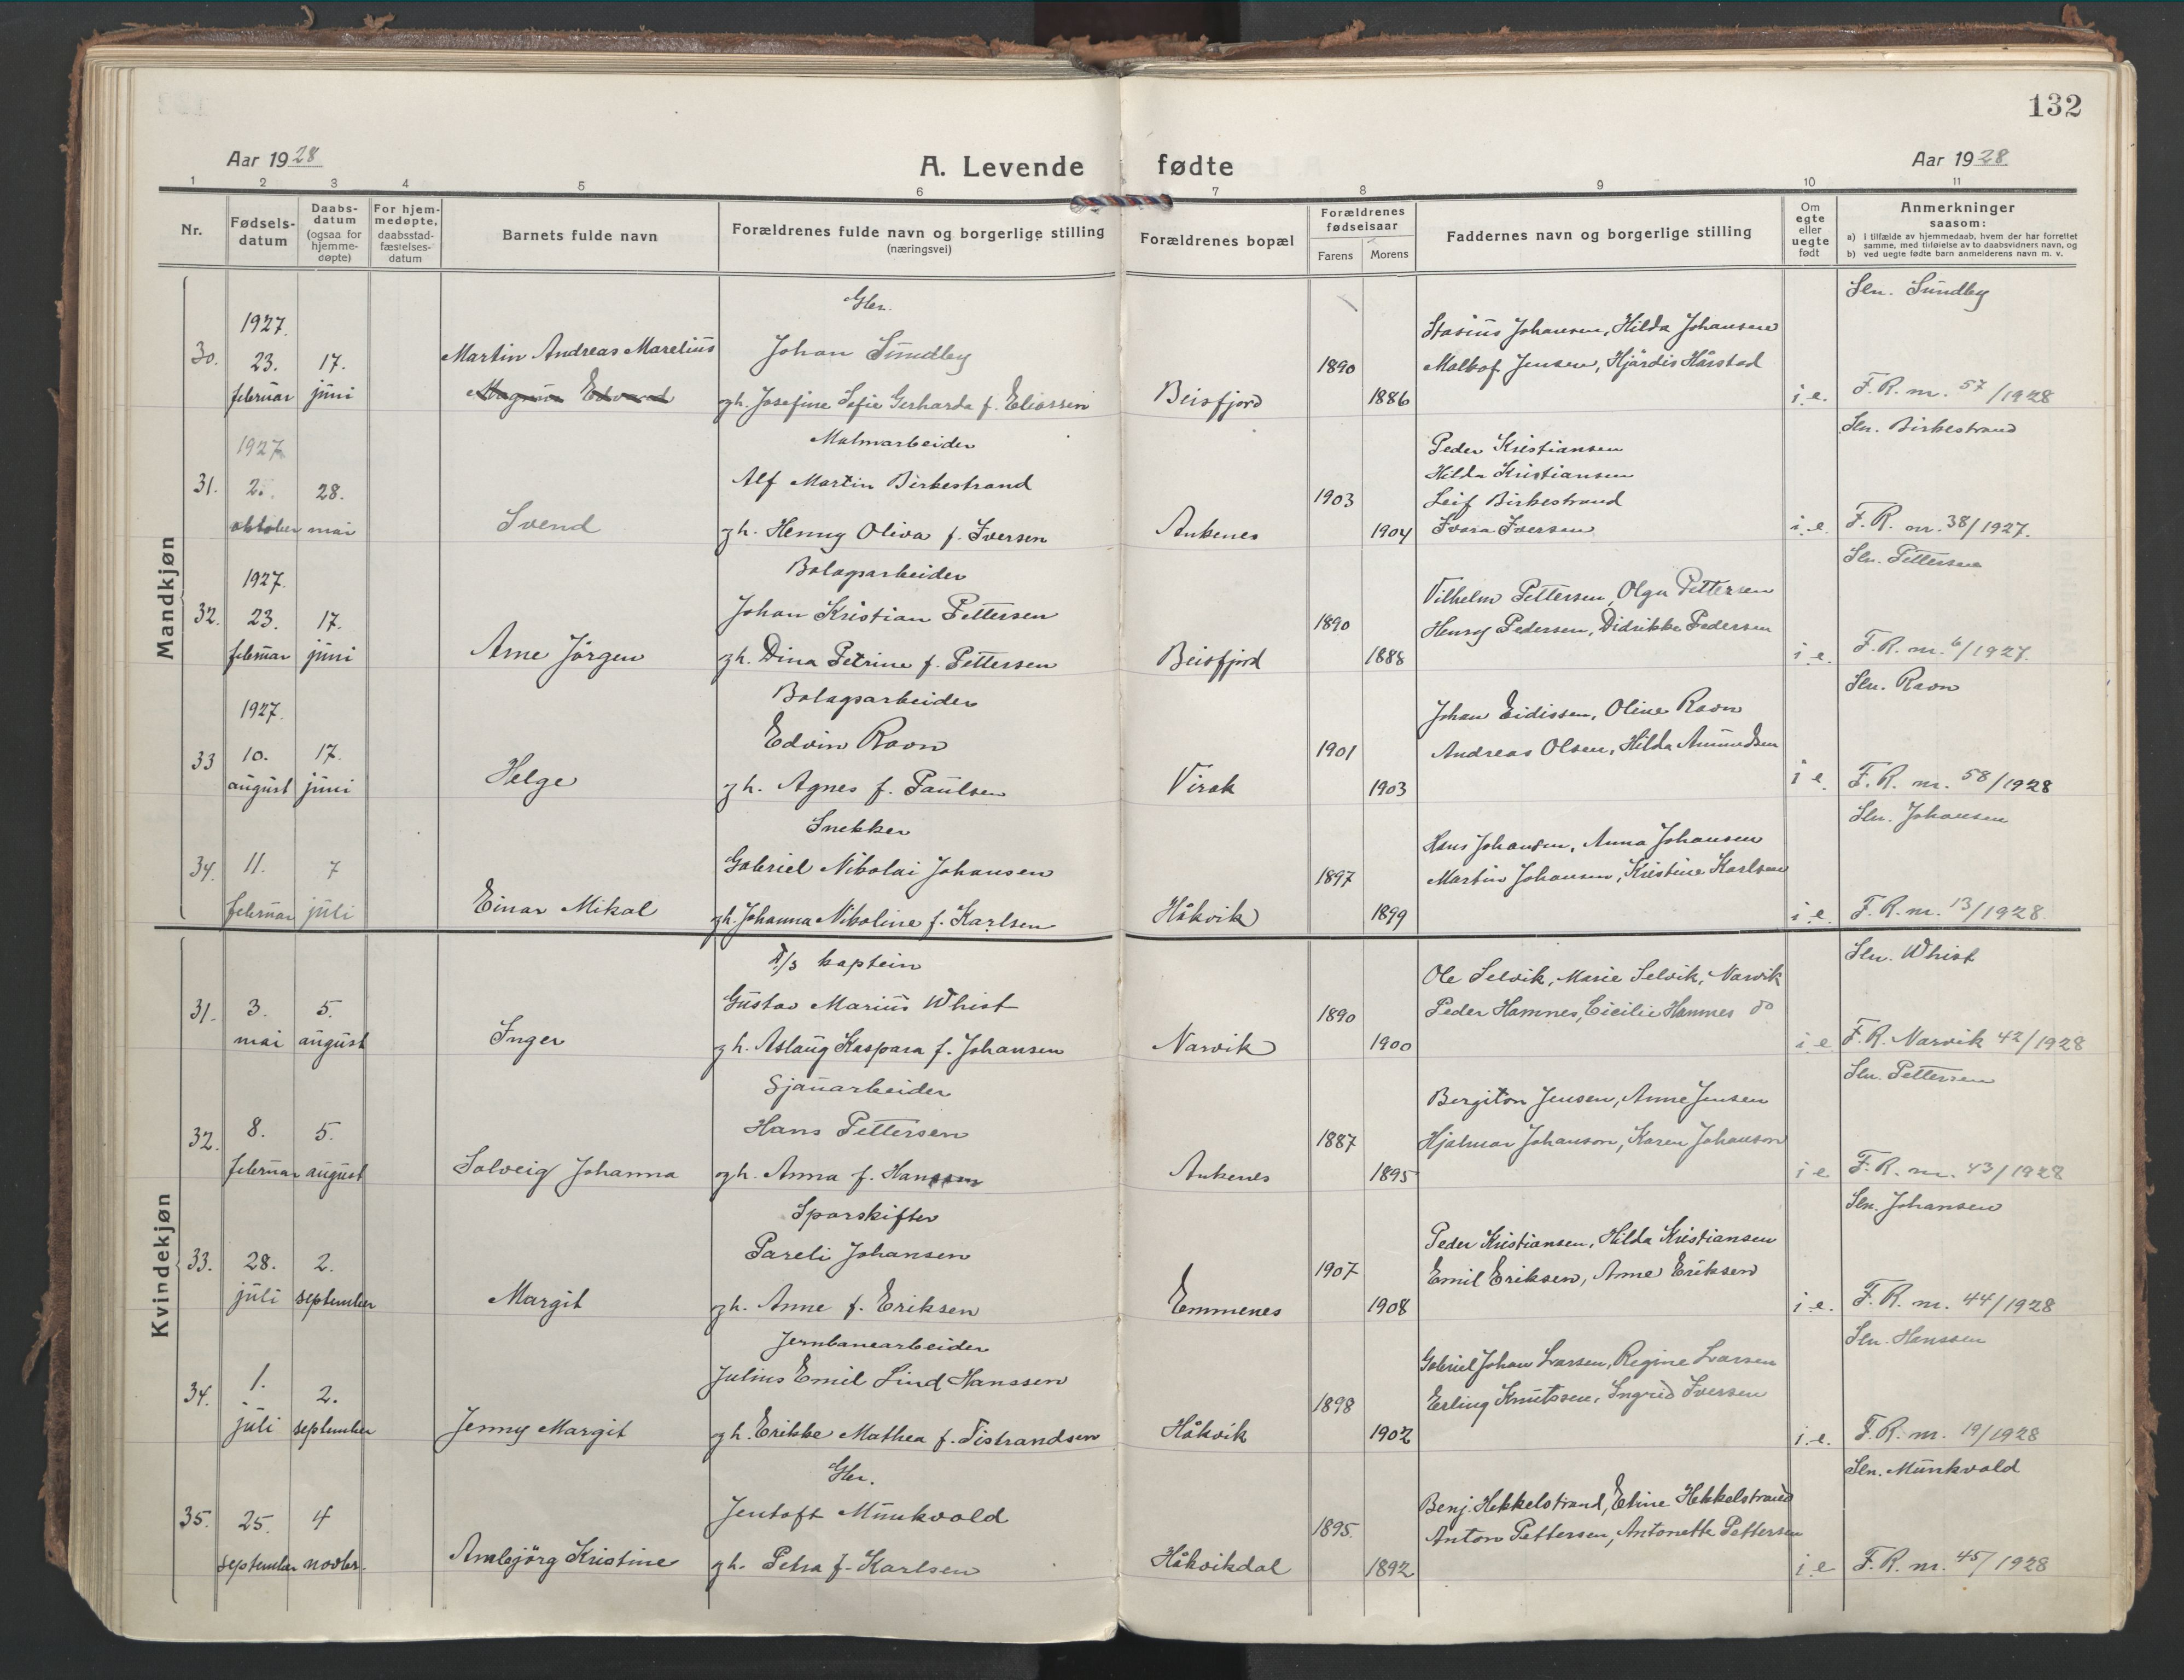 132
Aar 1928
A. Levende fødte
Aar 1928
1 2 3 4 5 6 7 8 9 10 11
Nr.
Fødsels-
datum
Daabs-
datum
(ogsaa for
hjemme-
døpte)
For hjem-
medøpte,
daabsstad-
fæstelses-
datum
Barnets fulde navn
Forældrenes fulde navn og borgerlige stilling
(næringsvei)
Forældrenes bopæl
Forældrenes
fødselsaar
Farens Morens
Faddernes navn og borgerlige stilling
Om
egte
eller
uegte
født
Anmerkninger
saasom:
a) i tilfælde av hjemmedaab, hvem der har forrettet
samme, med tilføielse av to daabsvidners navn, og
b) ved uegte fødte barn anmelderens navn m. v.
Mandkjøn
Gbr. Sen. Sundby
1927. Stasius Johansen, Hilda Johansen
30. 23. 17. Martin Andreas Marelius Johan Sundby 1890 Malhof Jensen, Hjørdis Hårstad
februar juni Magnus Edvard gh. Josefine Sofie Gerharda f. Eliassen Beisfjord 1886 i.e. F.R. nr. 57/1928
1927 Malmarbeider Peder Kristiansen Sen. Birkestrand
31. 28. Alf Martin Birkestrand Hilda Kristiansen
1903 Leif Birkestrand
oktober mai Svend gh. Henny Oliva f. Iversen Ankenes 1904 Ivara Iversen i.e. F.R. nr. 38/1927.
1927. Bolagsarbeider Sen. Pettersen
32. 23. 17. Johan Kristian Pettersen 1890 Vilhelm Pettersen, Olga Pettersen
Henry Pedersen, Didrikke Pedersen
februar juni Arne Jörgen gh. Dina Petrine f. Pettersen Beisfjord 1888 i.e. F.R. nr. 6/1927.
1927. Bolagsarbeider Sen. Ravn
33 10. 17. Edvin Ravn 1901 Johan Eidissen, Oline Ravn
Andreas Olsen, Hilda Amundsen
august juni Helge gh. Agnes f. Paulsen Virak 1903 i.e. F.R. nr. 58/1928
Snekker Sen. Johansen
34. 11. 7 Gabriel Nikolai Johansen 1897 Hans Johansen, Anna Johansen
Martin Johansen, Kristine Karlsen
februar juli Einar Mikal gh. Johanna Nikoline f. Karlsen Håkvik 1899 i.e. F.R. nr. 13/1928.
Kvindekjøn
D/S kaptein Sen. Whist
31. 3. 5. Gustav Marius Whist 1890 Ole Selvik, Marie Selvik, Narvik
Peder Hamnes, Cicilie Hamnes do
mai august Inger gh. Aslaug Kaspara f. Johansen Narvik 1900 i.e. F.R. Narvik 42/1928
Sjauarbeider Sen. Pettersen
32. 8. 5. Hans Pettersen 1887 Bergiton Jensen, Anne Jensen
Hjalmar Johanson, Karen Johanson
februar august Solveig Johanna gh. Anna f. Hanssen Ankenes 1895 i.e. F.R. nr. 43/1928
Sporskifter Sen. Johansen
33. 28. 2. Pareli Johansen 1907 Peder Kristiansen, Hilda Kristiansen
Emil Eriksen, Anne Eriksen
juli september Margit gh. Anne f. Eriksen Emmenes 1908 i.e. F.R. nr. 44/1928
Jernbanearbeider Sen. Hanssen
34. 1. 2. Julius Emil Lind Hanssen 1898 Gabriel Johan Larsen, Regine Larsen
Erling Knutssen, Ingrid Iversen
juli september Jenny Margit gh. Erikke Mathea f. Tistrandsen Håkvik 1902 i.e. F.R. nr. 19/1928
Gbr. Sen. Munkvold
35. 25. 4 Jentoft Munkvold 1895. Benj. Hekkelstrand, Eline Hekkelstrand
Anton Pettersen, Antonette Pettersen
september novbr. Anbjörg Kristine gh. Petra f. Karlsen Håkvikdal 1892 i.e F.R. nr. 45/1928